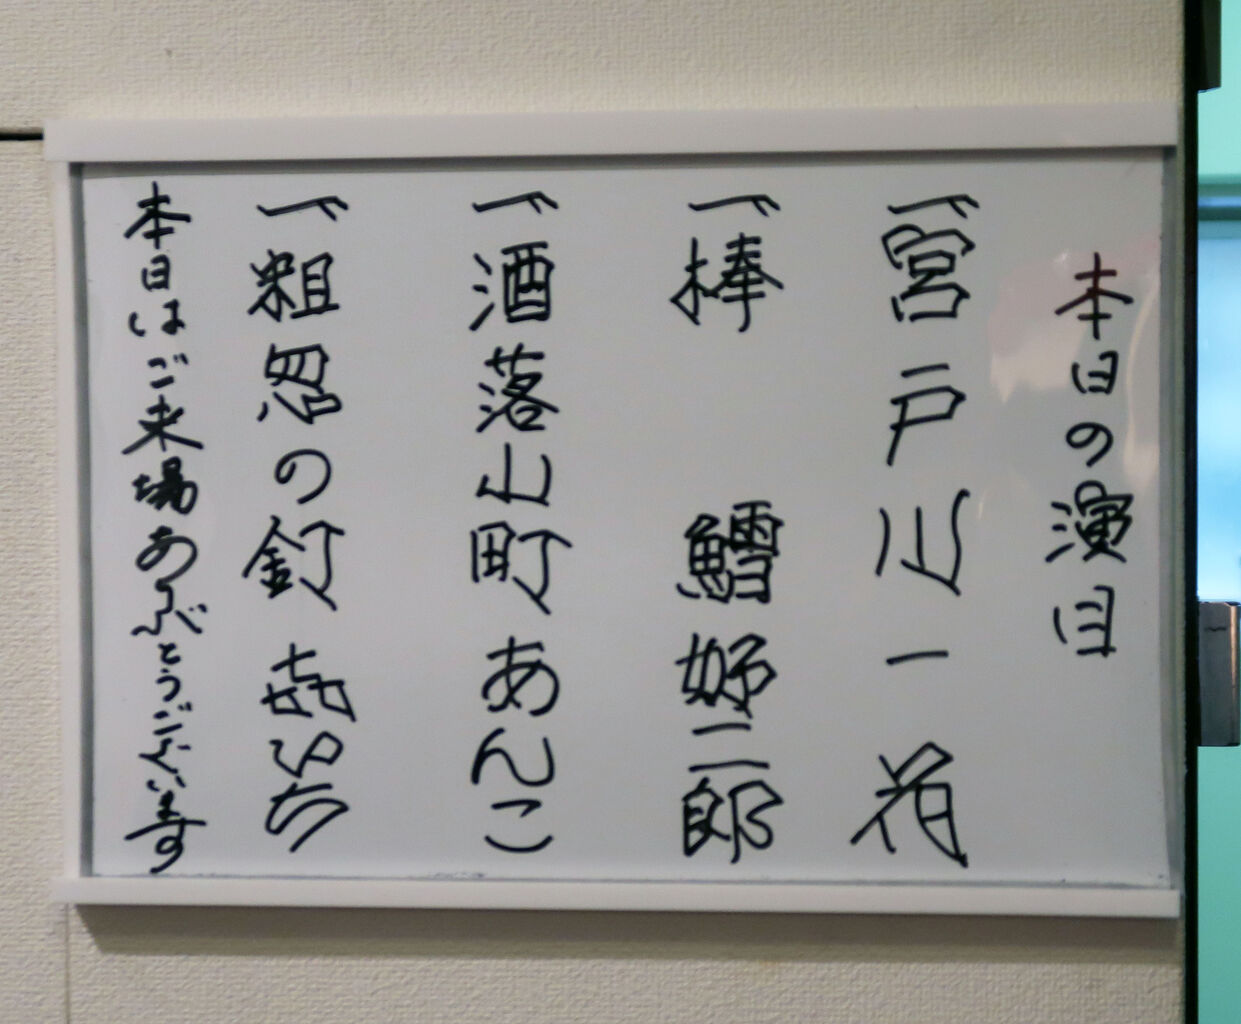 本日の演目
一、宮戸川
一、棒鱈 好二郎
一、酒落小町 あんこ
一、粗忽の釘 㐂いち
本日はご来場ありがとうございます